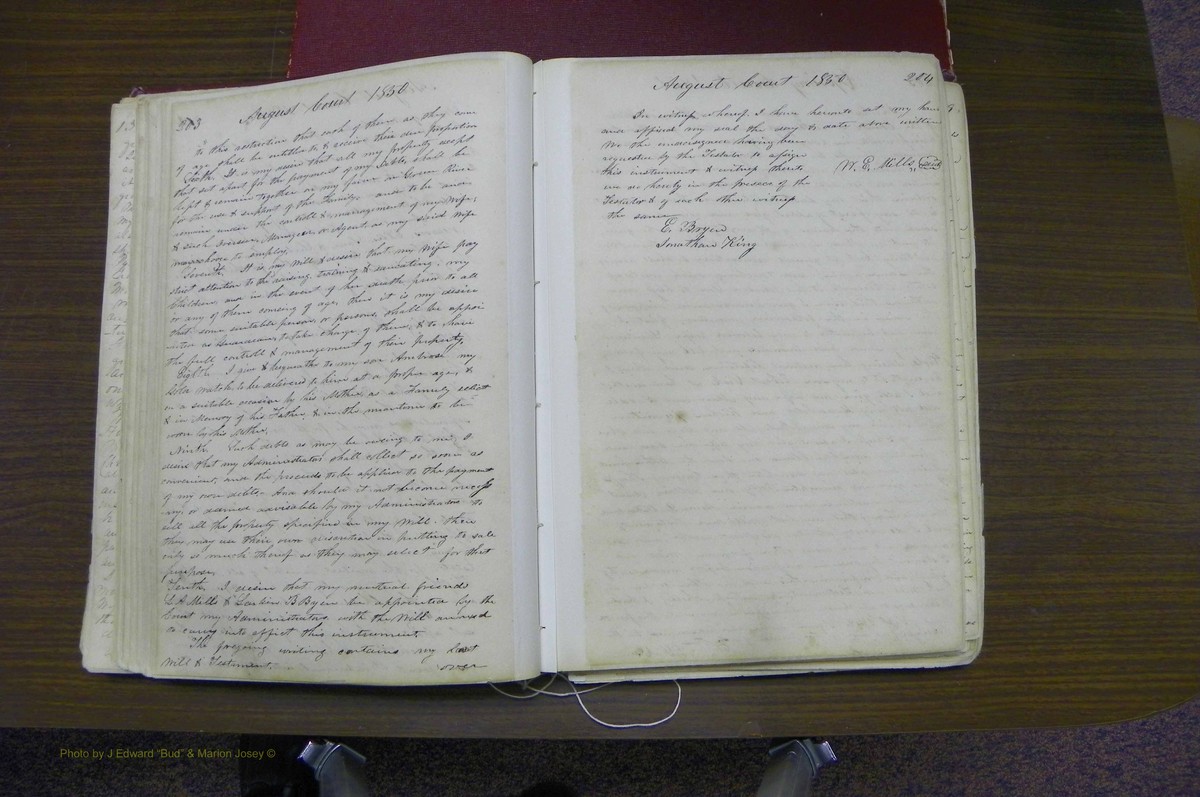 203 August Court 1850
to this restriction that each of them as they come
of age shall be entitled to & receive their due proportion
Sixth. It is my desire that all my property except
that set apart for the payment of my debts, shall be
kept & remain together on my farm on Green River
for the use & support of the family. and to be and
remain under the controll & management of my Wife,
& such Overseer, Manager or Agent, as my said Wife
may choose to employ.
Seventh. It is my Will & desire that my Wife pay
strict attention to the raising, training & educating, my
Children, and in the event of her death prior to all
or any of them coming of age, then it is my desire
that some suitable person, or persons, shall be appoi
nted as Guardians, to take charge of them, & to have
the full controll & management of their property.
Eighth. I give & bequeathe to my son Ambrose my
Gold watch, to be delivered to him at a proper age, &
on a suitable occasion by his Mother, as a Family relict
& in Memory of his Father, & in the meantime to be
worn by his Mother.
Ninth. Such debts as may be owing to me, I
desire that my Administrators shall collect as soon as
convenient, and the proceeds to be applied to the payment
of my own debts. And should it not become necess
ary, or deemed advisable by my Administrators to
sell all the property specified in my Will, then
they may use their own discretion in putting to sale
only so much thereof as they may select for that
purpose.
Tenth. I desire that my mutual friends
L A Mills & B Bryan be appointed by the
Court my Administrators with the Will annexed
to carry into effect this instrument
The foregoing writing contains my last
Will & Testiment. over
August Court 1850 204
In witness whereof I have hereunto set my hand
and affixed my seal the day & date above written
We the undersigned having been
requested by the Testator to assign
this instrument & witness thereto W. E. Mills, Seal
even so hereby in the presence of the
Testator & of each other witness
the same
C. Bryan
Jonathan King
Photo by J Edward "Bud" & Marion Josey ©